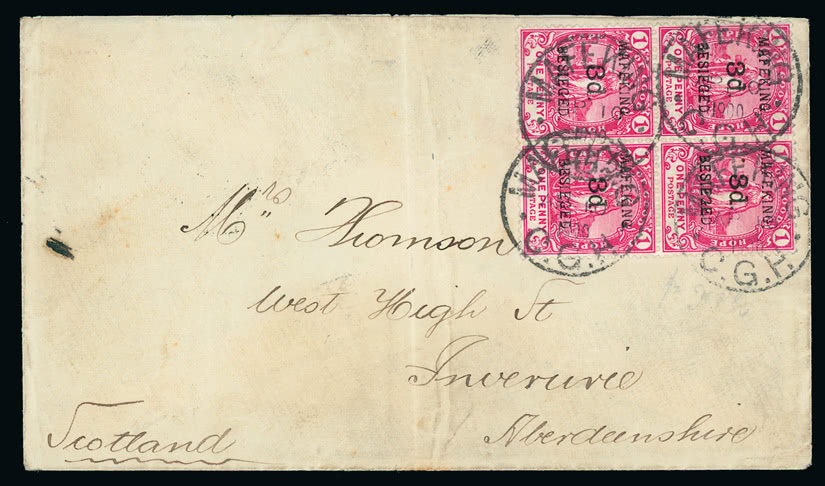 MAFEKING
3d.
BESIEGED
ONE PENNY
POSTAGE
1
MAFEKING
3d.
BESIEGED
1
MAFEKING
3d.
BESIEGED
ONE PENNY
POSTAGE
1
MAFEKING
3d.
BESIEGED
ONE PENNY
POSTAGE
HOPE
1
MAFEKING
1900
C.G.H.
MAFEKING
C.G.H.
Mrs Thomson
West High St
Inverurie
Aberdeenshire
Scotland